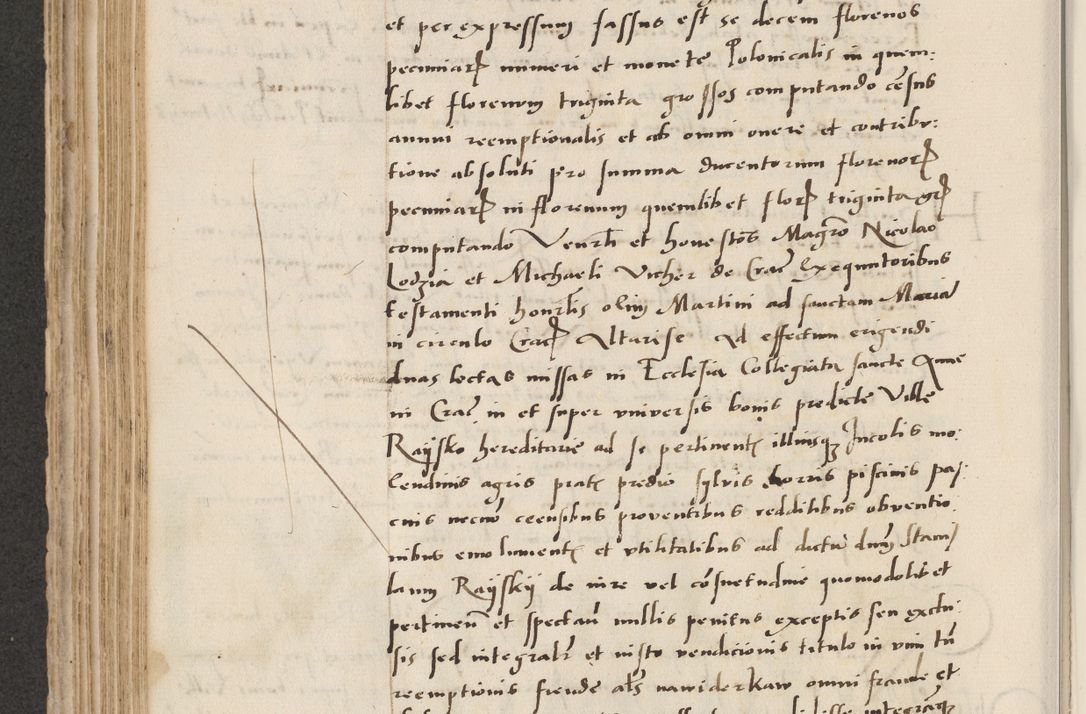 et per expressum fassus est se decem florenos
pecuniarꝝ numeri et monete Polonicalis in quem:
libet florenum triginta grossos computando cēsus
annui reemptionalis et ab omni onere et contribu:
tione absoluti pro summa ducentorum florenorꝝ
pecuniarꝝ in florenum quemlibet florꝝ triginta grꝝ
computando Venrƀli et honestōs Magrō Nicolao
Lodzia et Michaeli Vicher de Crac̄ Exequutoribus
testamenti honrƀlis olim Martini ad sanctam Mariā
in circulo Cracꝝ Altariste Ad effectum erigendi
duas lectas missas in Ecclesia Collegiata sancte Anne
in Crac̄ in et super universis bonis predicte Ville
Raÿsko hereditarie ad se pertinentꝭ illiusqꝫ Incolis mo:
lendinis agris pratꝭ predio sylvis horris piscinis pas:
cuis necnō ceensibus proventibus redditibus obventio
nibus emolumentꝭ et vtilitatibus ad dictū dnm̄ Stanis
laum Raÿskÿ de iure vel cōsuetudine quomodolibet
pertinen̄ et spectan̄ nullis penitus exceptis seu exclu:
sis sed integralr̄ et iusto vendicionis titulo in vim tn̄
reemptionis fiende als̄ nawiderkaw omni fraude et